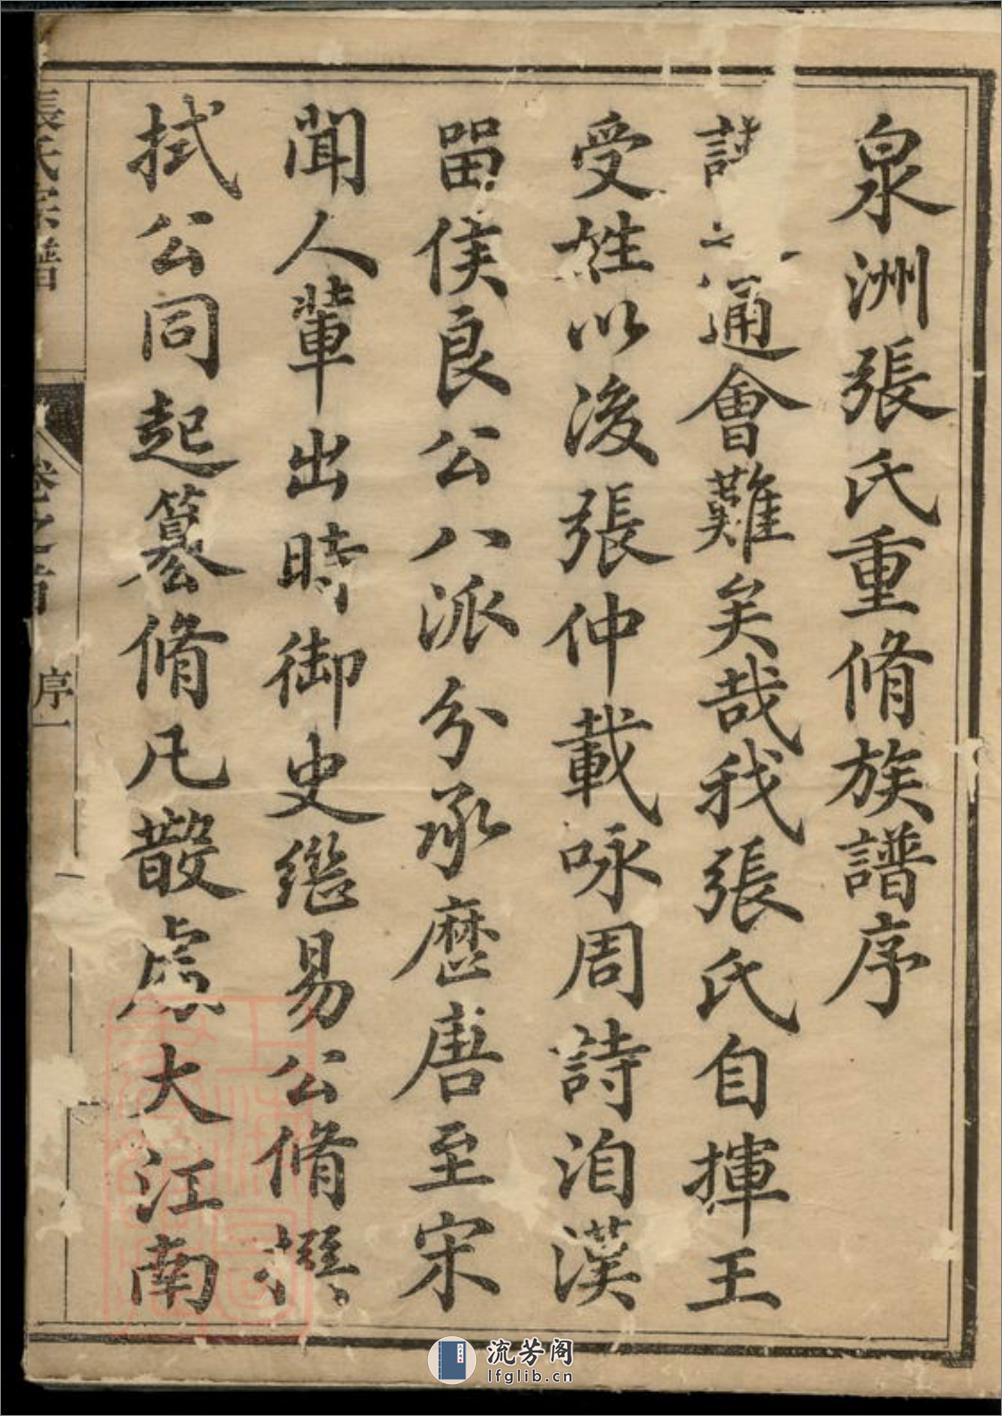 泉洲張氏重脩族譜序
通會難矣哉我張氏自揮王
受姓以後張仲載咏周詩洎漢
畱侯良公八派分承歷唐至宋
聞人輩出時御史繼易公脩撰
拭公同起纂脩凡散處大江南
張氏宗譜
卷之首 序一
流芳阁
lfglib.cn